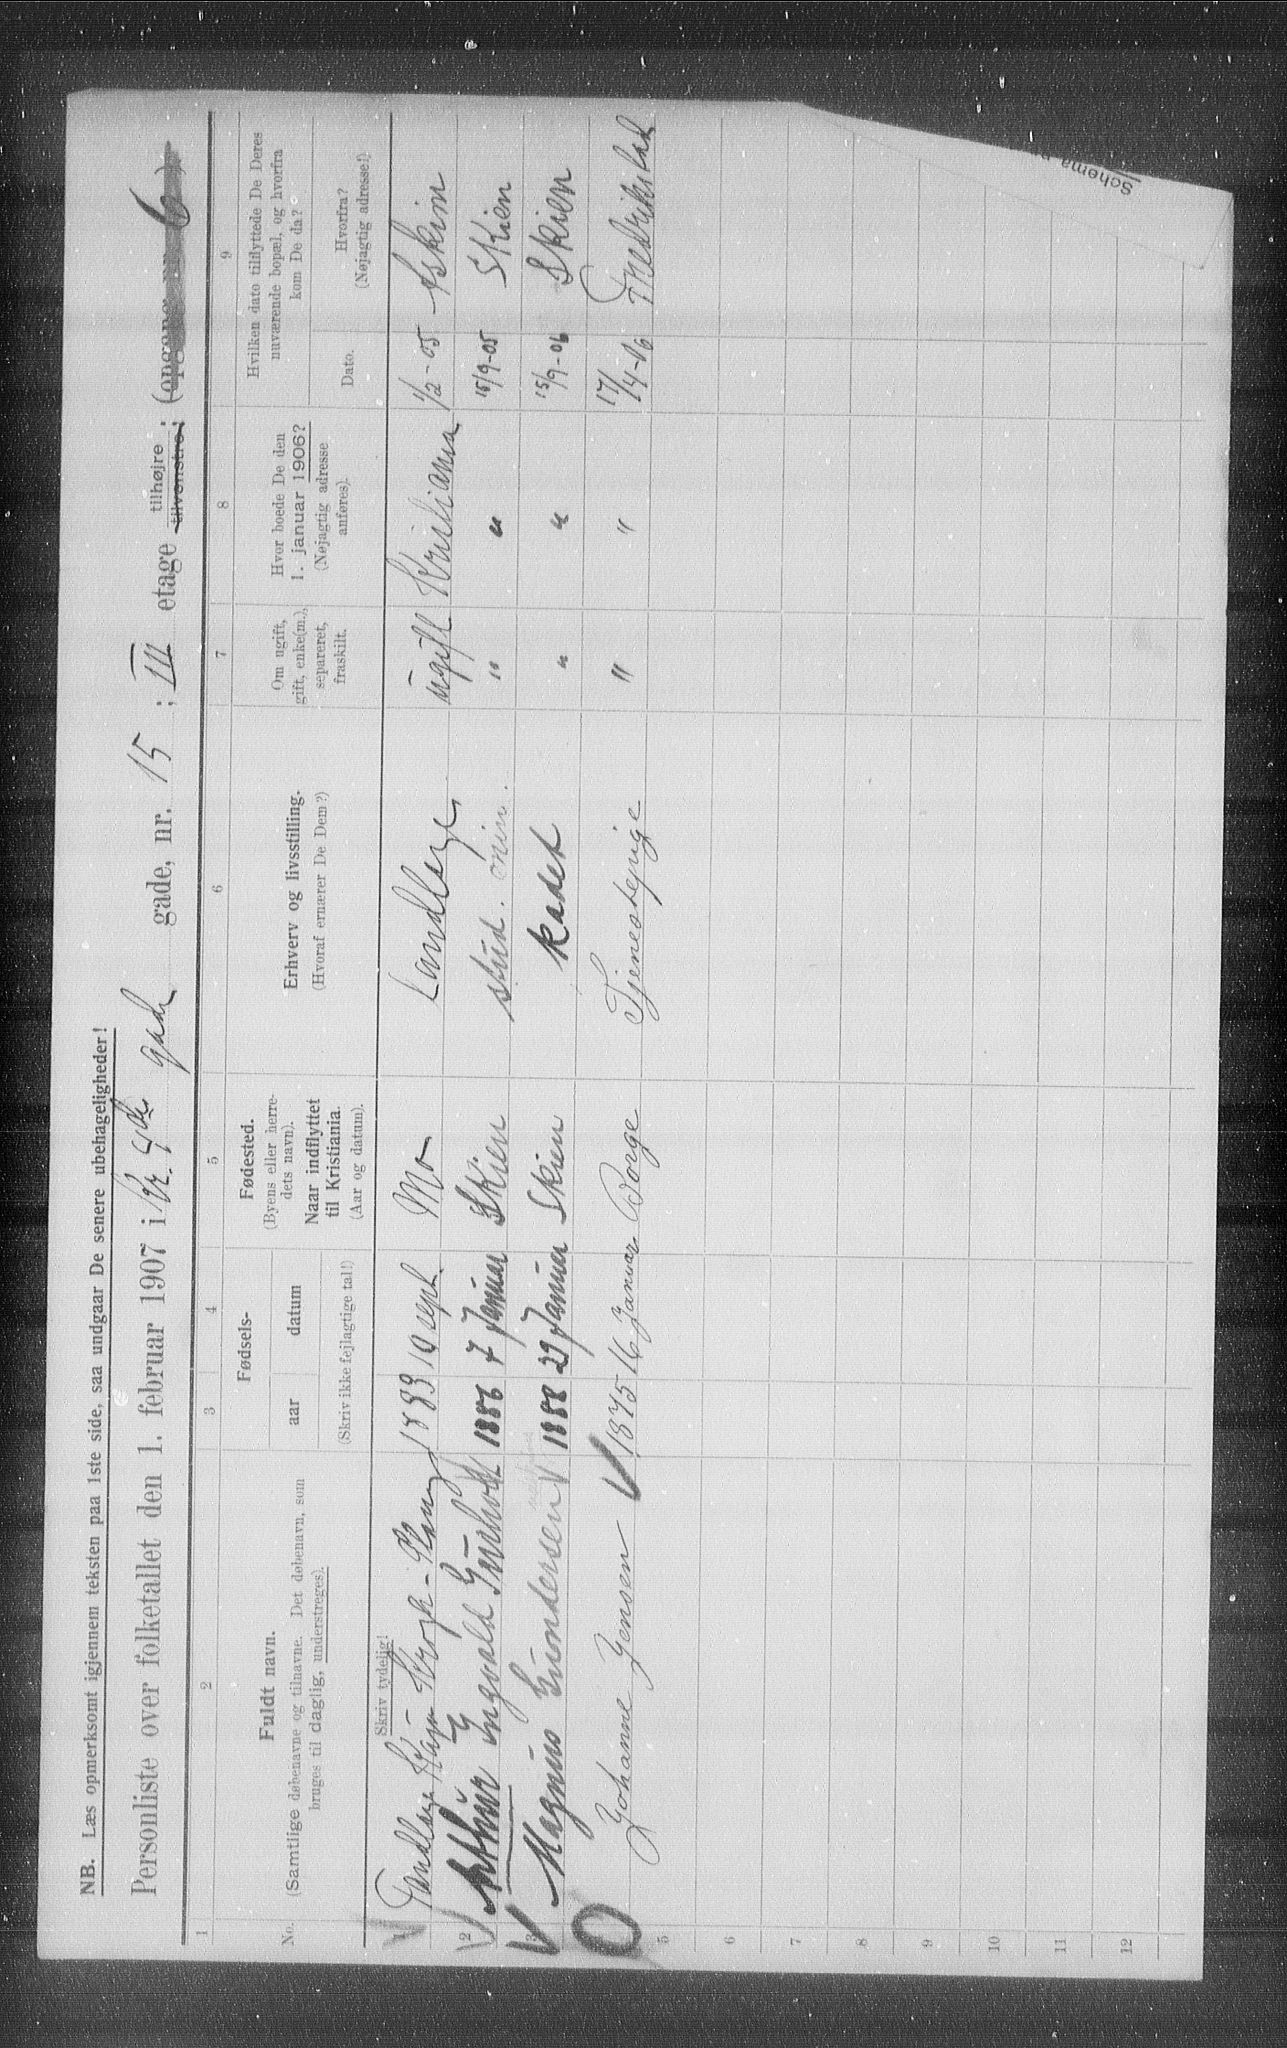 NB. Læs opmerksomt igjennem teksten paa 1ste side, saa undgaar De senere ubehageligheder!
Personliste over folketallet den 1. februar 1907 i Kr. 4des gade gade, nr. 15 ; III etage tilhøjre ; (opgang nr. 6)
tilvenstre ;
1 2 3 4 5 6 7 8 9
No.
Fuldt navn.
(Samtlige døbenavne og tilnavne. Det døbenavn, som
bruges til daglig, understreges).
Skriv tydelig!
Fødsels-
aar datum
(Skriv ikke fejlagtige tal!)
Fødested.
(Byens eller herre-
dets navn).
Naar indflyttet
til Kristiania.
(Aar og datum).
Erhverv og livsstilling.
(Hvoraf ernærer De Dem?)
Om ugift,
gift, enke(m.),
separeret,
fraskilt.
Hvor boede De den
1. januar 1906?
(Nøjagtig adresse
anføres).
Hvilken dato tilflyttede De Deres
nuværende bopæl, og hvorfra
kom De da?
Dato.
Hvorfra?
(Nøjagtig adresse!)
Tandlæge Krogh- 1883 19 sept. Mo Tandlæge ugift Kristiania 1/2-05 Askim
2 Arthur Ingvald 1886 7 Januar Skien stud. min. " " 15/9-05 Skien
3 Magnus Gundersen 1888 29 Januar Skien kadet " " 15/9-06 Skien
Johanne Jensen 1875 16 Januar Borge Tjenestepige " " 17/4-06 Fredrikstad
5
6
7
8
9
10
11
12
Schema